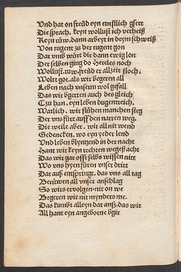 Vnd hat on freüd eyn entlich gferr
Die sprach, keyn wollust ich verheiß
Keyn růw. dann arbeyt in deym schweiß
Von tugent zů der tugent gon
Dar vmb würt dir dann ewig lon
Der selben ging do Hercules noch
Wollust, růw, freüd er allzeit floch
Wolt got, als wir begeren all
Leben noch vnserm wol gefall
Das wir begerten ouch des glich
Czů han eyn leben dugentrich,
Worlich wir flühen manchen steg
Der vns fürt vff den narren weg,
Die wile aber wir all nit wend
Gedencken, wo eyn yeder lend
Vnd leben blyntzend in der nacht
Hant wir keyn rechten wegß acht
Das wir gar offt selbs wissen nitt
Wo vns hyn füren vnser dritt
Dar vß entspringt, das vns all tag
Beruwen all vnser anschlag
So wirs ervolgen nit on we
Begeren wir nüt mynders me.
Das kumbt alleyn dar vß, das wir
All hant eyn angeboren bgir